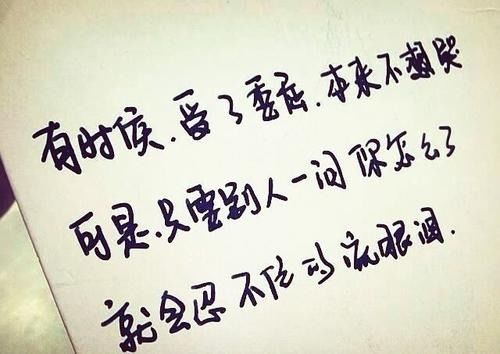 有时候.受了委屈.本来不想哭
可是.只要别人一问你怎么了
就会忍不住的流眼泪.